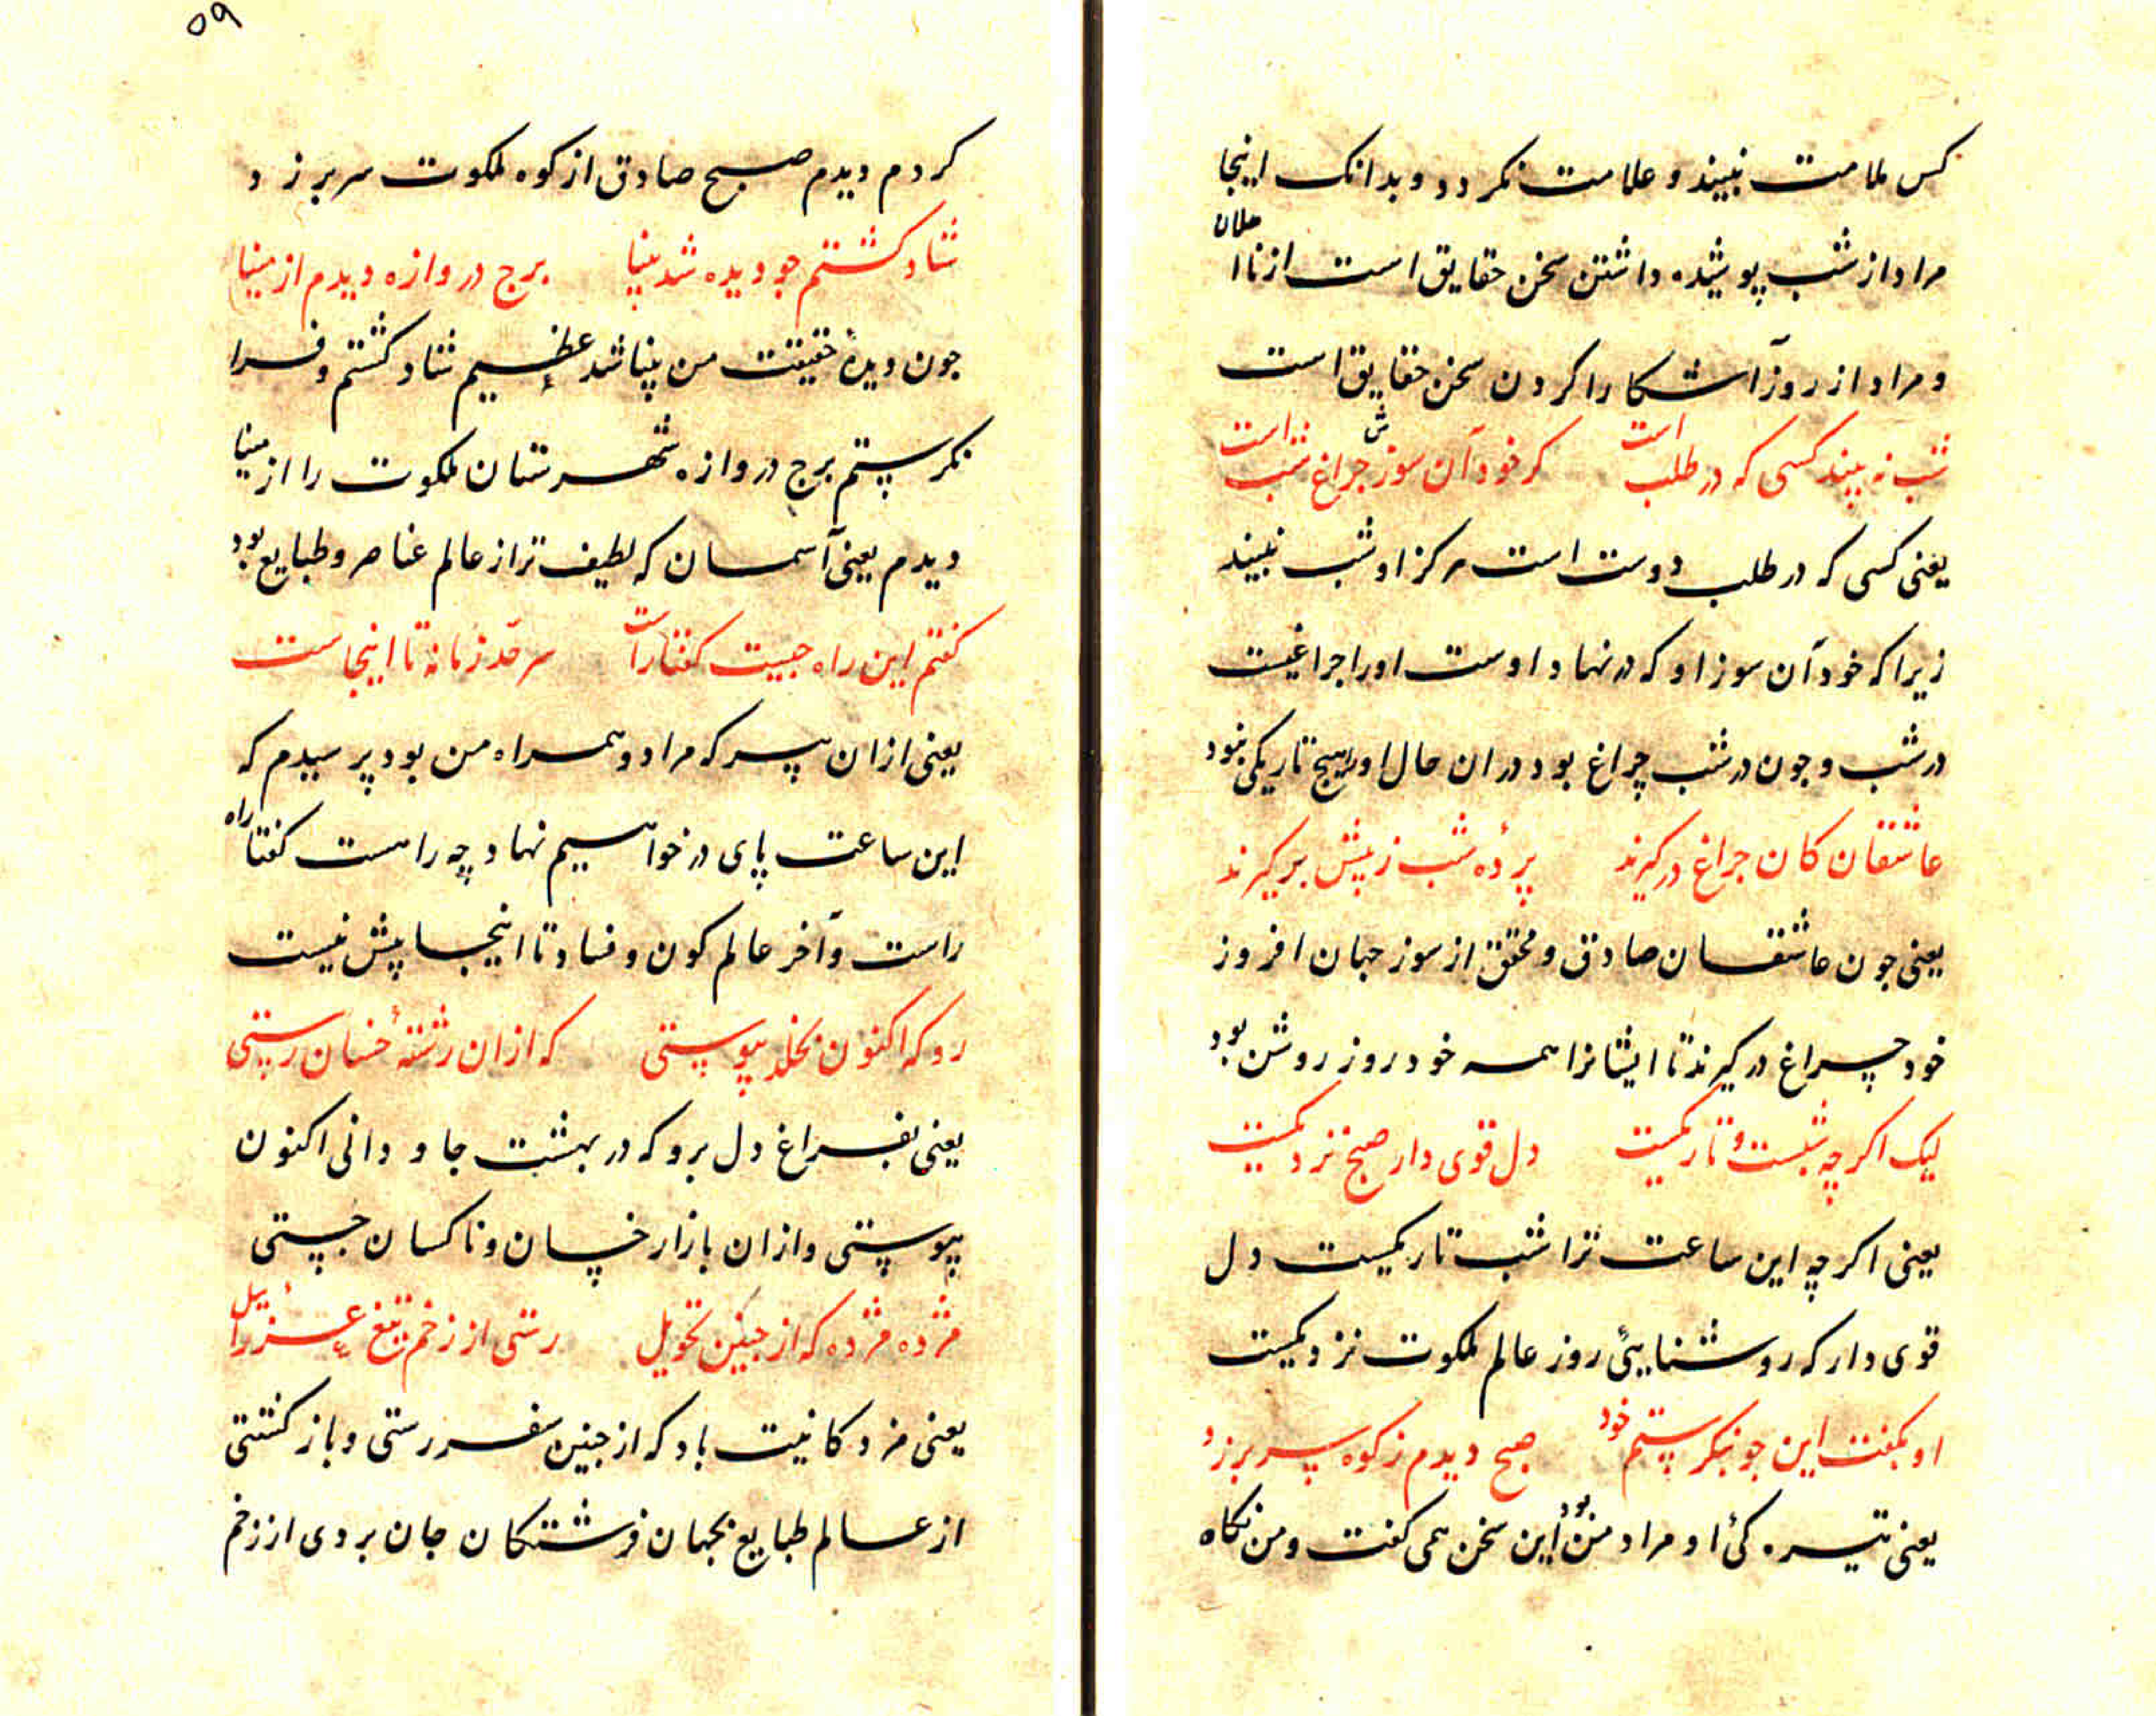 کس ملامت نبیند و علامت نکردد و بدانک اینجا
مراد از شب پوشیده داشتن سخن حقایق است از نااهلان
و مراد از روز آشکارا کردن سخن حقایق است
شب نه بیند کسی که در طلب است کر خود آن سوزش جراغ شب است
یعنی کسی که در طلب دوست است هرکز او شب نبیند
زیرا که خود آن سوز او که در نهاد اوست اورا جراغیست
در شب و جون در شب چراغ بود در ان حال اورا هیج تاریکی نبود
عاشقان کان جراغ درکیرند پردهٔ شب ز پیش برکیرند
یعنی جون عاشقان صادق و محقق از سوز جهان افروز
خود چراغ درکیرند تا ایشانرا همه خود روز روشن بود
لیک اکر چه شبست و تاریکیست دل قوی دار صبح نزدیکیست
یعنی اکر چه این ساعت ترا شب تاریکیست دل
قوی دار که روشنایئی روز عالم ملکوت نزدیکیست
او بکفت این جو بنکرستم خود صبح دیدم ز کوه سر برزد
یعنی تیره کئ او مراد من بود این سخن همی کفت و من نکاه
۵۹
کردم دیدم صبح صادق از کوه ملکوت سر برزد
شاد کشتم جو دیده شد بینا برج دروازه دیدم از مینا
جون دیدهٔ حقیقت من بینا شد عظیم شاد کشتم و فرا
نکرستم برج دروازه شهرستان ملکوت را از مینا
دیدم یعنی آسمان که لطیف تر از عالم عناصر و طبایع بود
کفتم این راه جیست کفتا راست سر حد زمانه تا اینجاست
یعنی ازان پیر که مراد و همراه من بود پرسیدم که
این ساعت پای در خواهیم نهاد چه راهست کفتا راه
راست و آخر عالم کون و فساد تا اینجا پیش نیست
رو که اکنون بخلد پیوستی که ازان رشتهٔ خسان رستی
یعنی بفراغ دل برو که در بهشت جاودانی اکنون
پیوستی و ازان بازار خسان و ناکسان جستی
مژده مژده که از جنین تحویل رستی از زخم تیغ عزرائیل
یعنی مزدکانیت باد که از جنین سفر رستی و باز کشتی
از عالم طبایع بجهان فرشتکان جان بردی از زخم